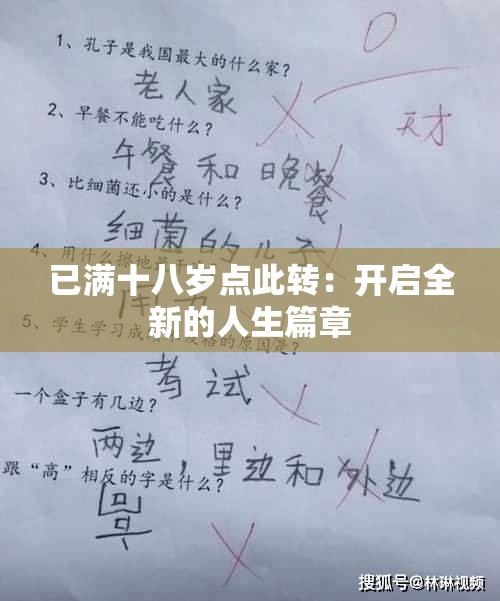 1、孔子是我国最大的什么家？
老人家
0
天才
2、早餐不能吃什么？
午餐和晚餐
3、比细菌还小的是什么？
细菌的儿子
4、用什么擦地
已满十八岁点此转：开启全
新的人生篇章
5、学生学习成 格的原因是？
考试
一个盒子有几边？
两边，里边和外边
跟“高”相反的字是什么？
搜狐号@林琳视频